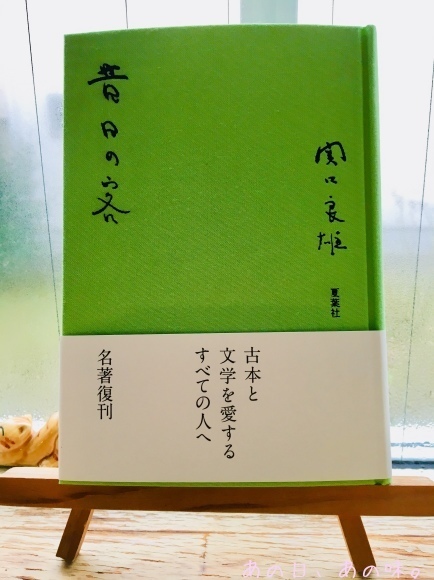 関口良雄
昔日の客
夏葉社
古本と
文学を愛する
すべての人へ
名著復刊
あの日、あの味。